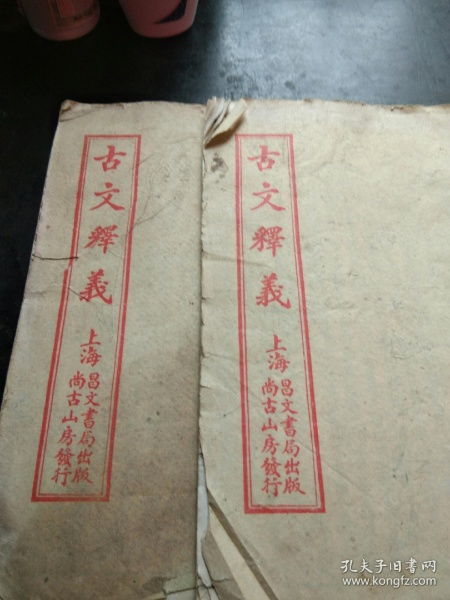 古文釋義
上海
昌文書局出版
尚古山房發行
古文釋義
上海
昌文書局出版
尚古山房發行
孔夫子旧書网
www.kongfz.com